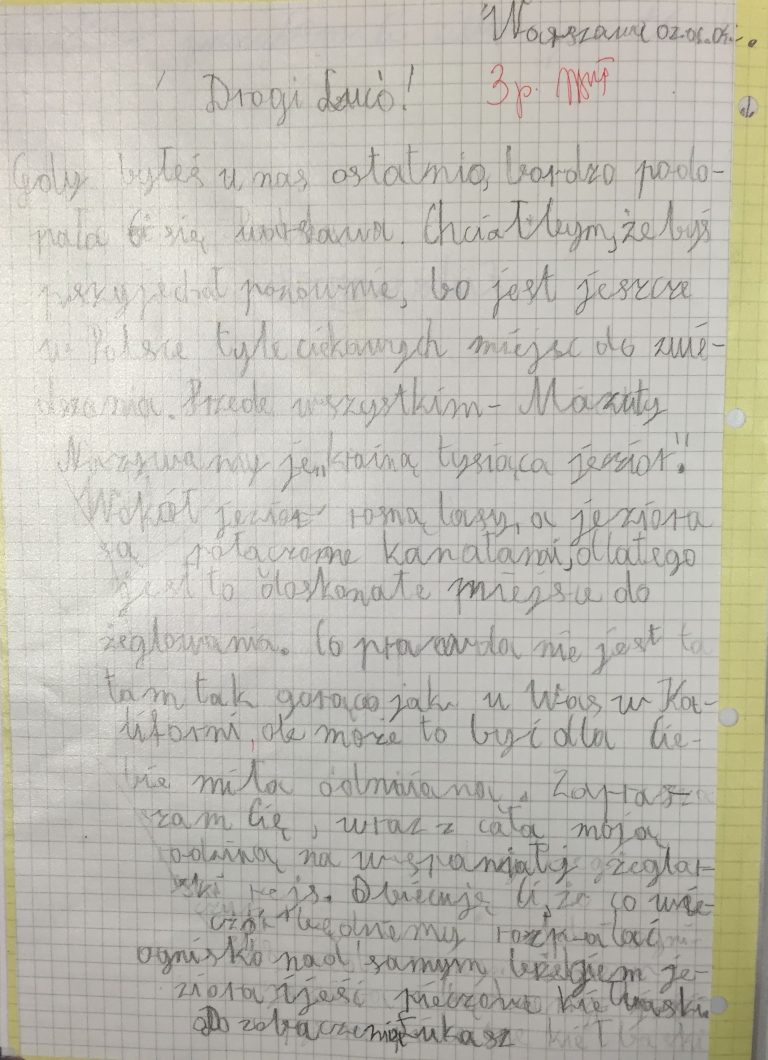 Warszawa 02.06.05.
Drogi Luco!
3p.
Gdy byłeś u nas ostatnio, bardzo podo-
bała Ci się Warszawa. Chciałbym, że byś
przyjechał ponownie, bo jest jeszcze
w Polsce tyle ciekawych miejsc do zwie-
dzania. Przede wszystkim - Mazury
Nazywamy je „krainą tysiąca jezior".
Wokół jezior rosną lasy, a jeziora
są połączone kanałami, dlatego
jest to doskonałe miejsce do
żeglowania. Co prawda nie jest ta
tam tak gorąco jak u Was w Ka-
liforni, ale może to być dla Cie-
bie miłą odmianą. Zaprasza
szam Cię, wraz z całą moją
rodziną na wspaniały żeglar-
ski rejs. Obiecuję Ci, że co wie-
czór będziemy rozpalać
ognisko nad samym brzegiem je-
ziora i jeść pieczone kiełbaski.
Do zobaczenia Łukasz